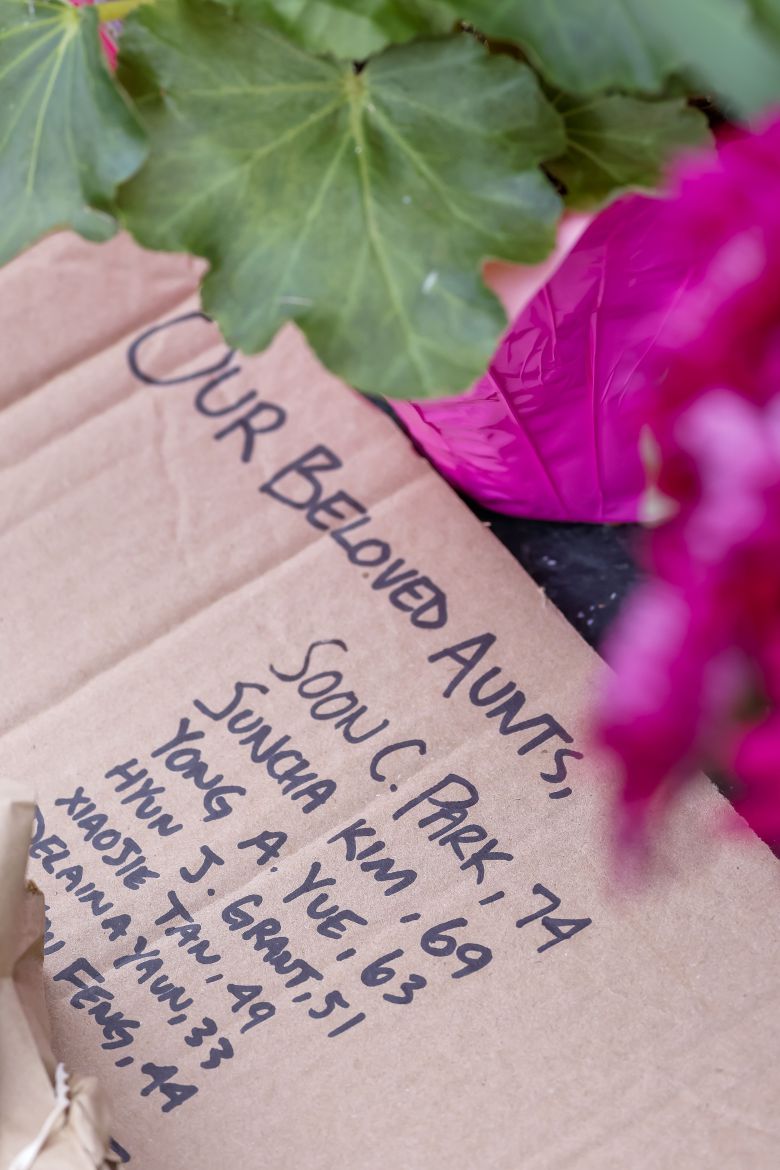 OUR BELOVED AUNTS,
SOON C. PARK, 74
SUNCHA KIM, 69
YONG A. YUE, 63
HYUN J. GRANT, 51
XIAOJIE TAN, 49
DELAINA YAUN, 33
FENG, 44